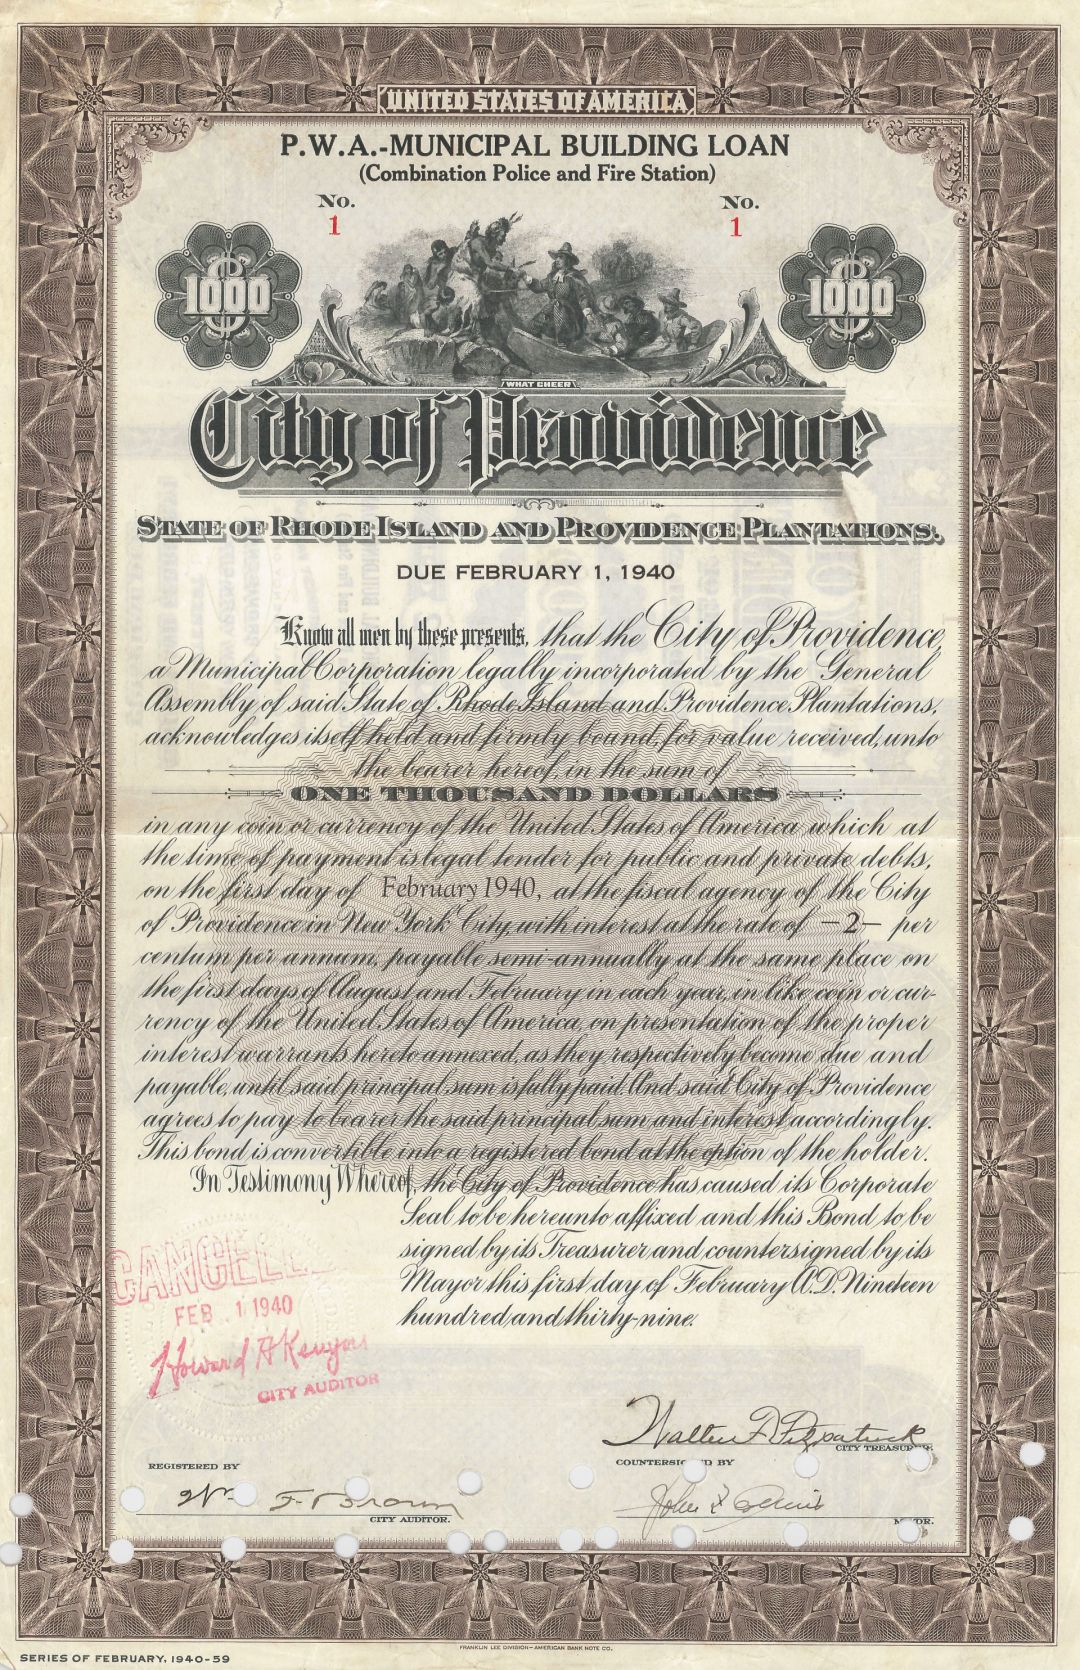 UNITED STATES OF AMERICA
P.W.A.-MUNICIPAL BUILDING LOAN
(Combination Police and Fire Station)
No. No.
1 1
1000 1000
WHAT CHEER
City of Providence
STATE OF RHODE ISLAND AND PROVIDENCE PLANTATIONS.
DUE FEBRUARY 1, 1940
Know all men by these presents, that the City of Providence,
a Municipal Corporation legally incorporated by the General
Assembly of said State of Rhode Island and Providence Plantations,
acknowledges itself held and firmly bound, for value received, unto
the bearer hereof, in the sum of
ONE THOUSAND DOLLARS
in any coin or currency of the United States of America which at
the time of payment is legal tender for public and private debts,
on the first day of February 1940, at the fiscal agency of the City
of Providence in New York City, with interest at the rate of -2- per
centum per annum, payable semi-annually at the same place on
the first days of August and February in each year, in like coin or cur-
rency of the United States of America, on presentation of the proper
interest warrants hereto annexed, as they respectively become due and
payable, until said principal sum is fully paid. And said City of Providence
agrees to pay to bearer the said principal sum and interest accordingly.
This bond is convertible into a registered bond at the option of the holder.
In Testimony Whereof, the City of Providence has caused its Corporate
Seal to be hereunto affixed and this Bond to be
signed by its Treasurer and countersigned by its
Mayor this first day of February A.D. Nineteen
hundred and thirty-nine.
CANCELL
FEB 1 1940
Howard A Kenyon
CITY AUDITOR
Walter F. Fitzpatrick
CITY TREASURER.
REGISTERED BY
COUNTERSIGNED BY
Wm F. Brown
CITY AUDITOR.
John F Collins
MAYOR.
FRANKLIN LEE DIVISION-AMERICAN BANK NOTE CO.
SERIES OF FEBRUARY, 1940-59